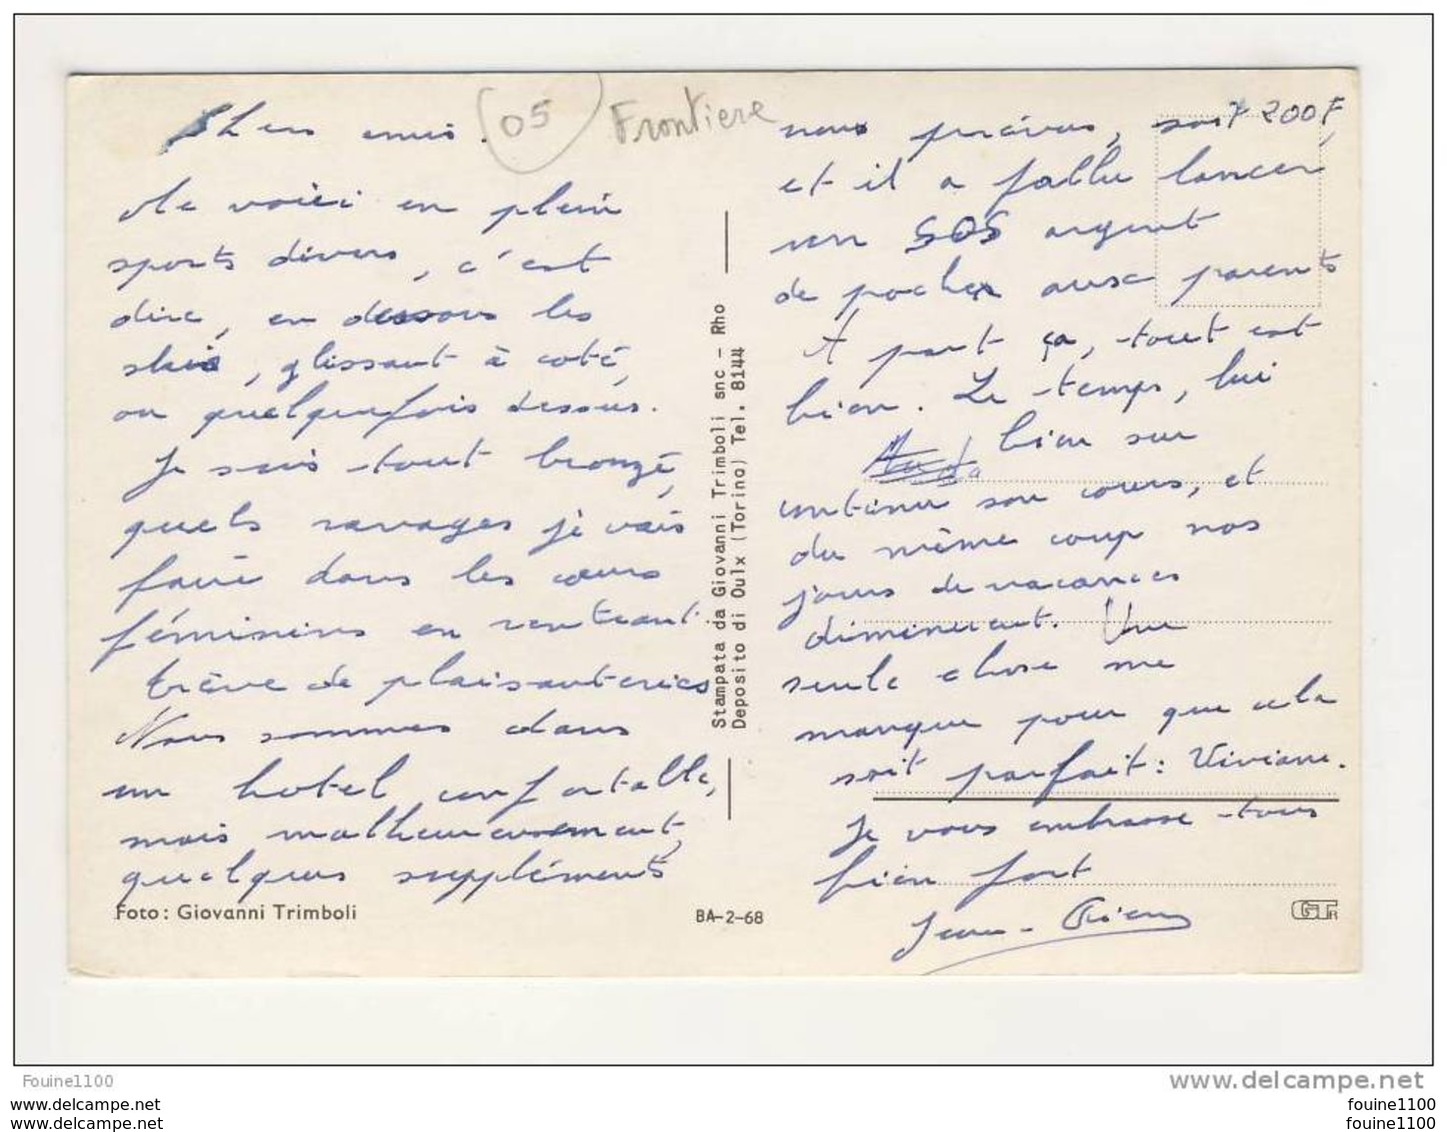 Chers amis.
05
Frontiere
Me voici en plein
sports divers, c'est
dire, en dessous les
skis, glissant à coté,
ou quelquefois dessus.
Je suis tout bronzé,
quels ravages je vais
faire dans les cœurs
féminins en rentrant.
trève de plaisanteries
Nous sommes dans
un hotel confortable,
mais malheureusement,
quelques suppléments
Foto: Giovanni Trimboli
Stampata da Giovanni Trimboli snc - Rho
Deposito di Oulx (Torino) Tel. 8144
BA-2-68
non prévus, soit 200F,
et il a fallu lancer
un SOS argent
de poche aux parents
A part ça, tout est
bien. Le temps, lui
bien sur
continu son cours, et
du même coup nos
jours de vacances
diminuent. Une
seule chose me
manque pour que cela
soit parfait: Viviane.
Je vous embrasse tous
bien fort
Jean-Pierre
GTR
Fouine1100
www.delcampe.net
fouine1100
www.delcampe.net
fouine1100
www.delcampe.net
fouine1100